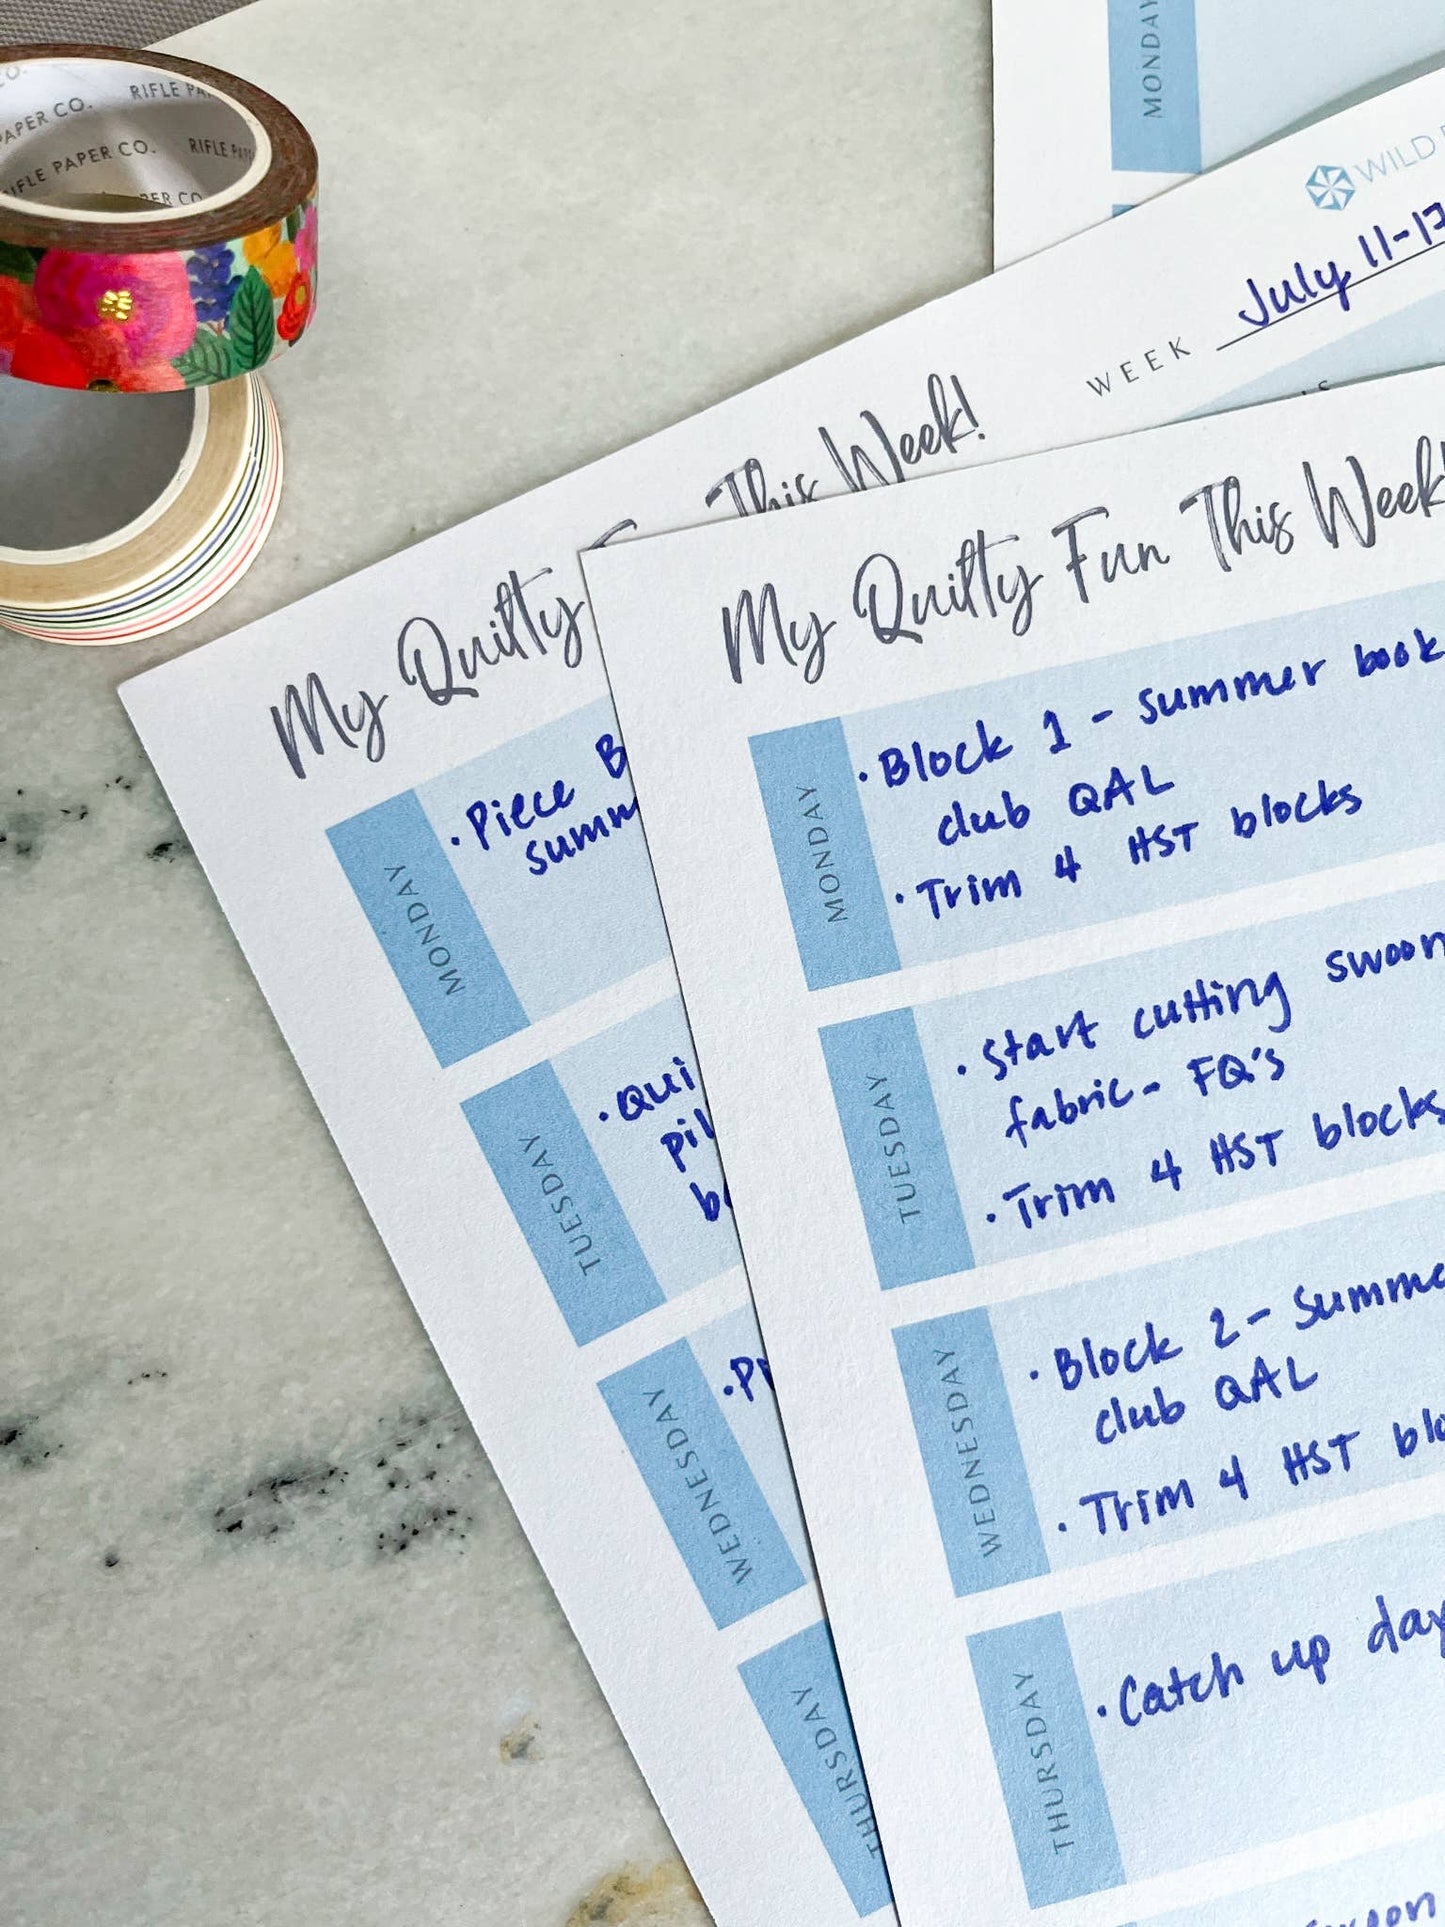 RIFLE PAPER CO.
RIFLE
PAPER CO.
RIFLE PAPER CO.
RIFLE
MONDAY
WILD
WEEK July 11-17
My Quilty This Week!
MONDAY
• Piece
TUESDAY
WEDNESDAY
THURSDAY
My Quilty Fun This Week!
MONDAY
• Block 1 - summer book
club QAL
• Trim 4 HST blocks
TUESDAY
• Start cutting swoon
fabric - FQ's
• Trim 4 HST blocks
WEDNESDAY
• Block 2 - Summer
club QAL
• Trim 4 HST
THURSDAY
• Catch up day